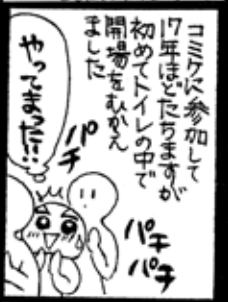 コミケに参加して
17年ほどたちますが
初めてトイレの中で
開場をむかえ
ました
やってまった!!
パチ
!!
パチ
パチ